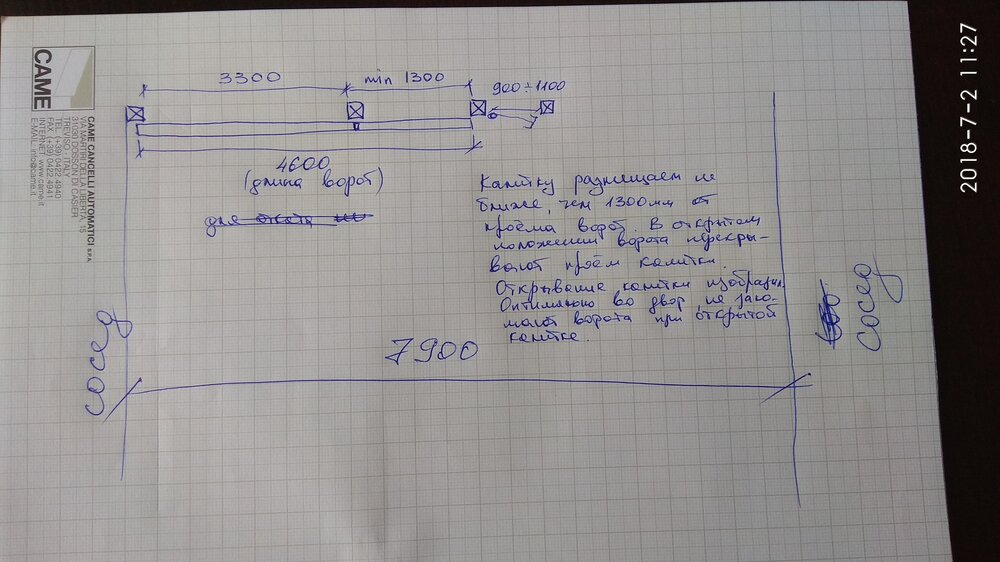 2018-7-2 11:27
CAME
CAME CANCELLI AUTOMATICI S.P.A.
VIA MARTIRI DELLA LIBERTÀ, 15
31030 DOSSON DI CASIER
TREVISO - ITALY
TEL. (+39) 0422 4940
FAX (+39) 0422 4941
INTERNET: www.came.it
E-MAIL: info@came.it
3300
min 1300
900÷1100
4600
(длина ворот)
для отката
Калитку размещаем не
ближе, чем 1300мм от
проёма ворот. В открытом
положении ворота перекры-
вают проём калитки.
Открывание калитки изобразил.
Оптимально во двор, не зако-
мает ворота при открытой
калитке.
7900
сосед
сосед